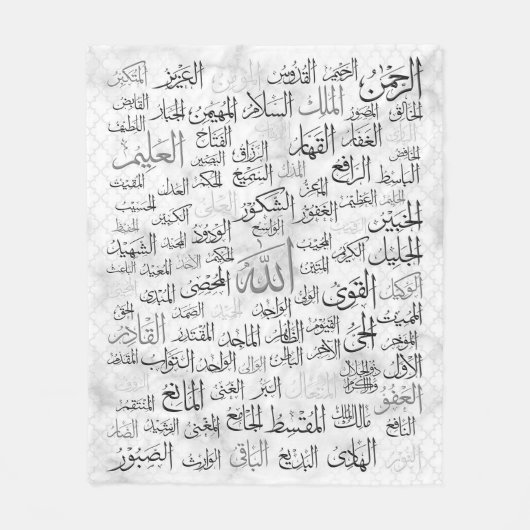 الرحمن الرحيم القدوس المؤمن العزيز المتكبر
الخالق المصور الملك السلام المهيمن الجبار القابض
الخافض الغفار القهار الرزاق الفتاح العليم اللطيف
الباسط الرافع المعز المذل السميع البصير الحكم العدل المقيت
الخبير الحليم العظيم الغفور الشكور العلي الكبير الحسيب الحفيظ
الجليل الكريم المجيب الواسع الودود المجيد الشهيد
الوكيل القوي المتين الله الحكيم الأحد المعيد الباعث
المميت الحي الولي الواجد الحميد الصمد المحصي المبدئ الحق
المؤخر القيوم الظاهر الماجد المقتدر القادر
الأول الآخر الباطن الوالي الواحد التواب المقدم
العفو ذو الجلال والإكرام المتعال البر الغني المانع المنتقم الرؤوف
النافع مالك الملك المقسط الجامع المغني الرشيد الضار
النور الهادي البديع الباقي الوارث الصبور